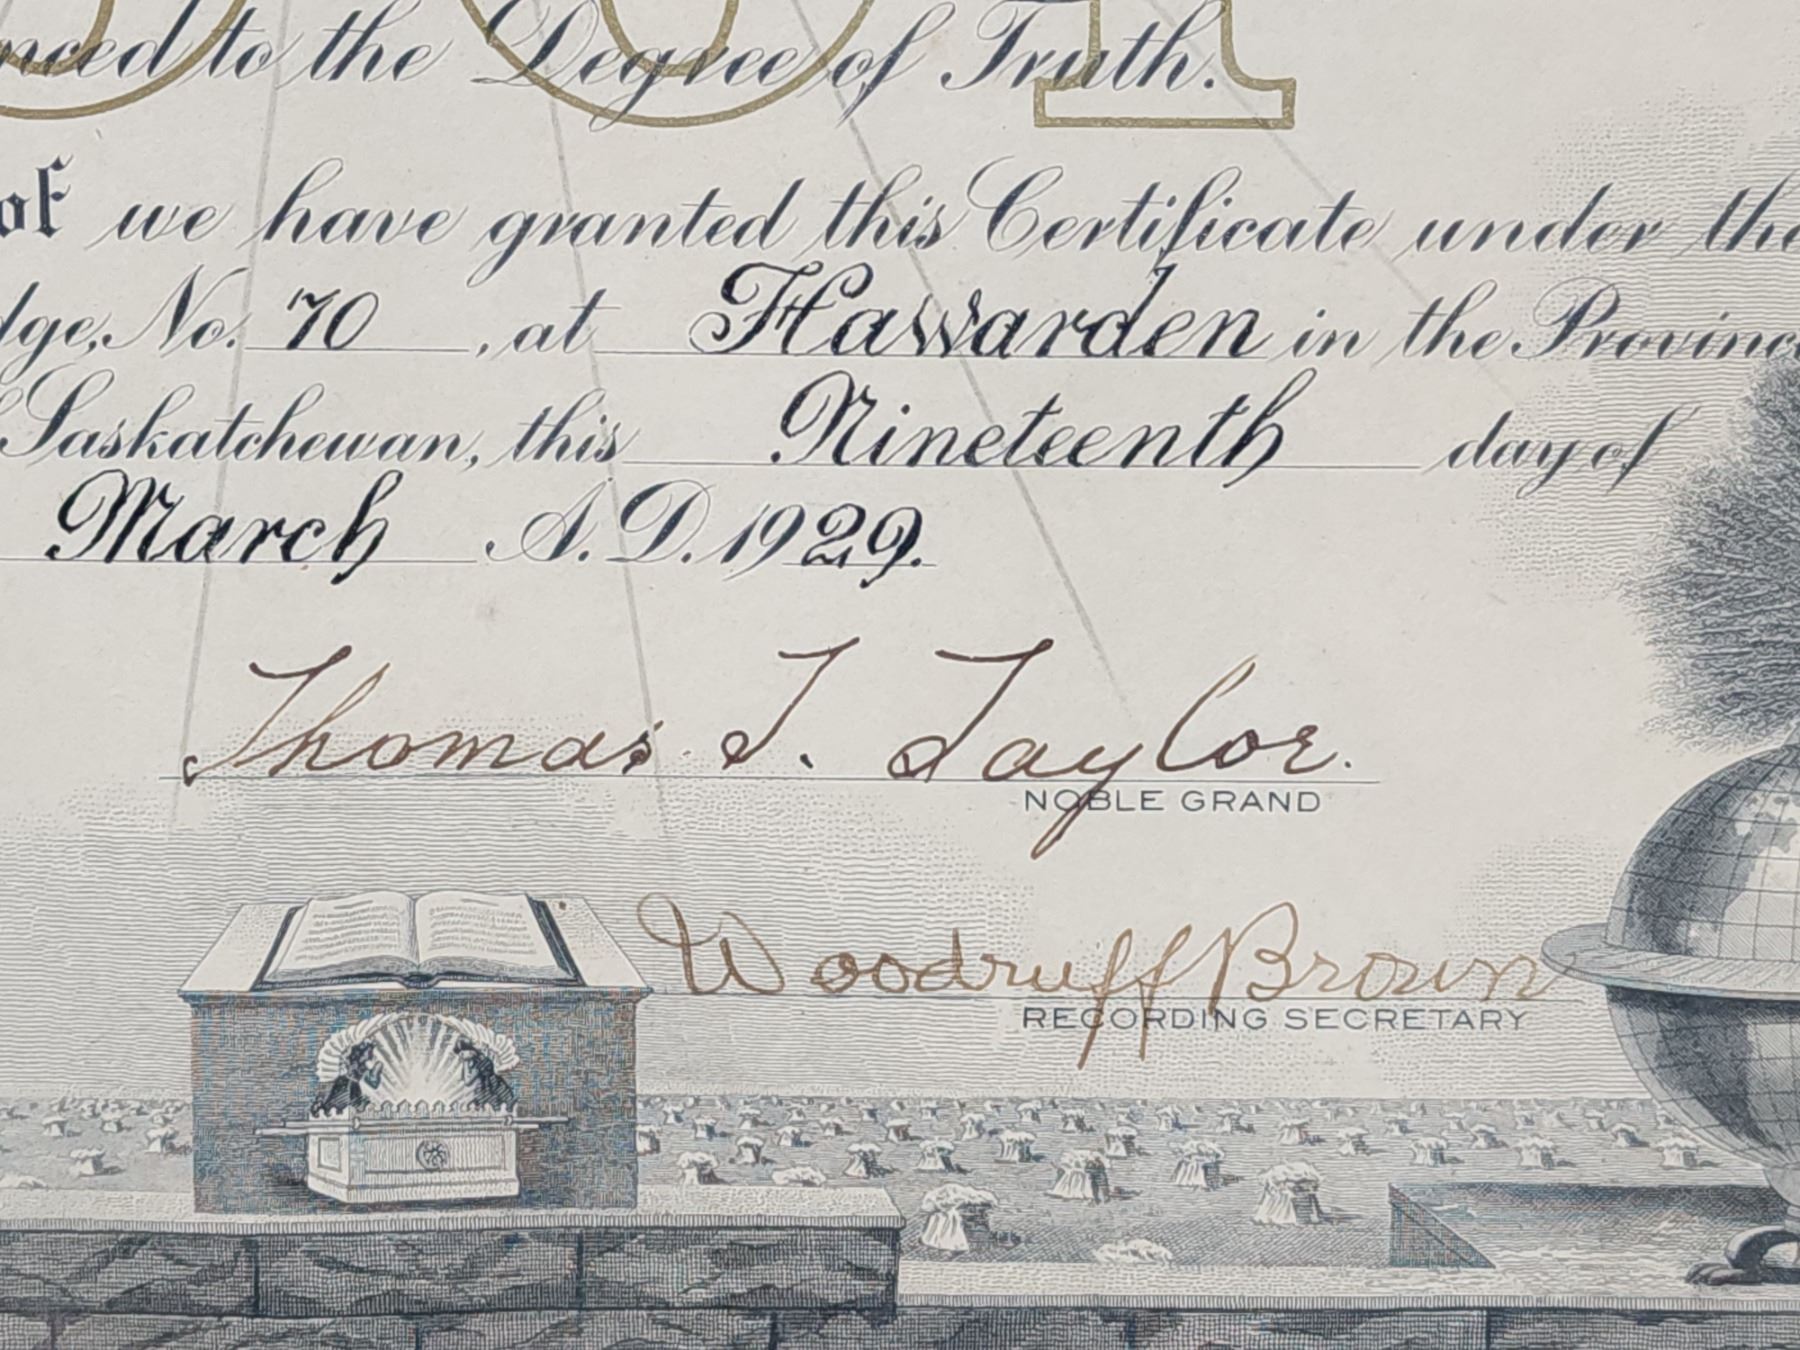 to the Degree of Truth.
we have granted this Certificate under the
No. 70, at Hawarden in the Province
Saskatchewan, this Nineteenth day of
March A.D. 1929.
Thomas T. Taylor.
NOBLE GRAND
Woodruff Brown
RECORDING SECRETARY